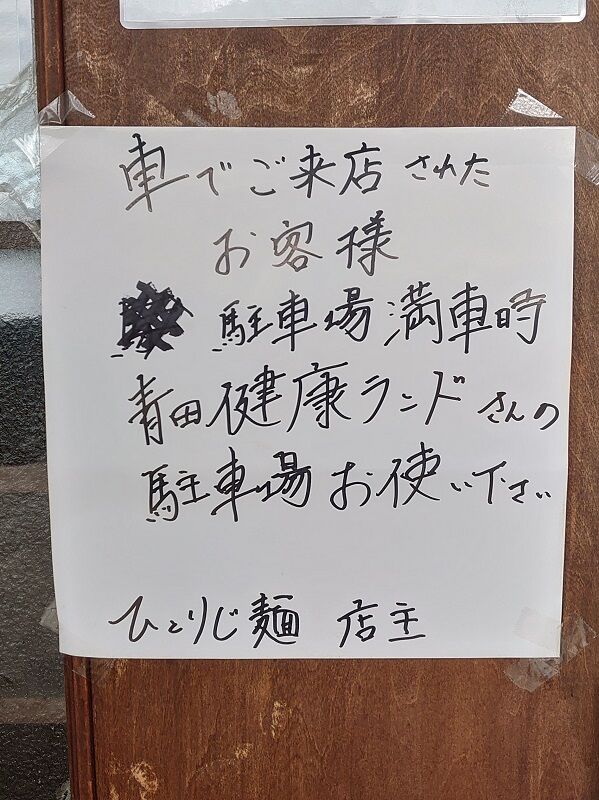 車でご来店された
お客様
駐車場満車時
青田健康ランドさんの
駐車場お使い下さい
ひとりじ麺 店主